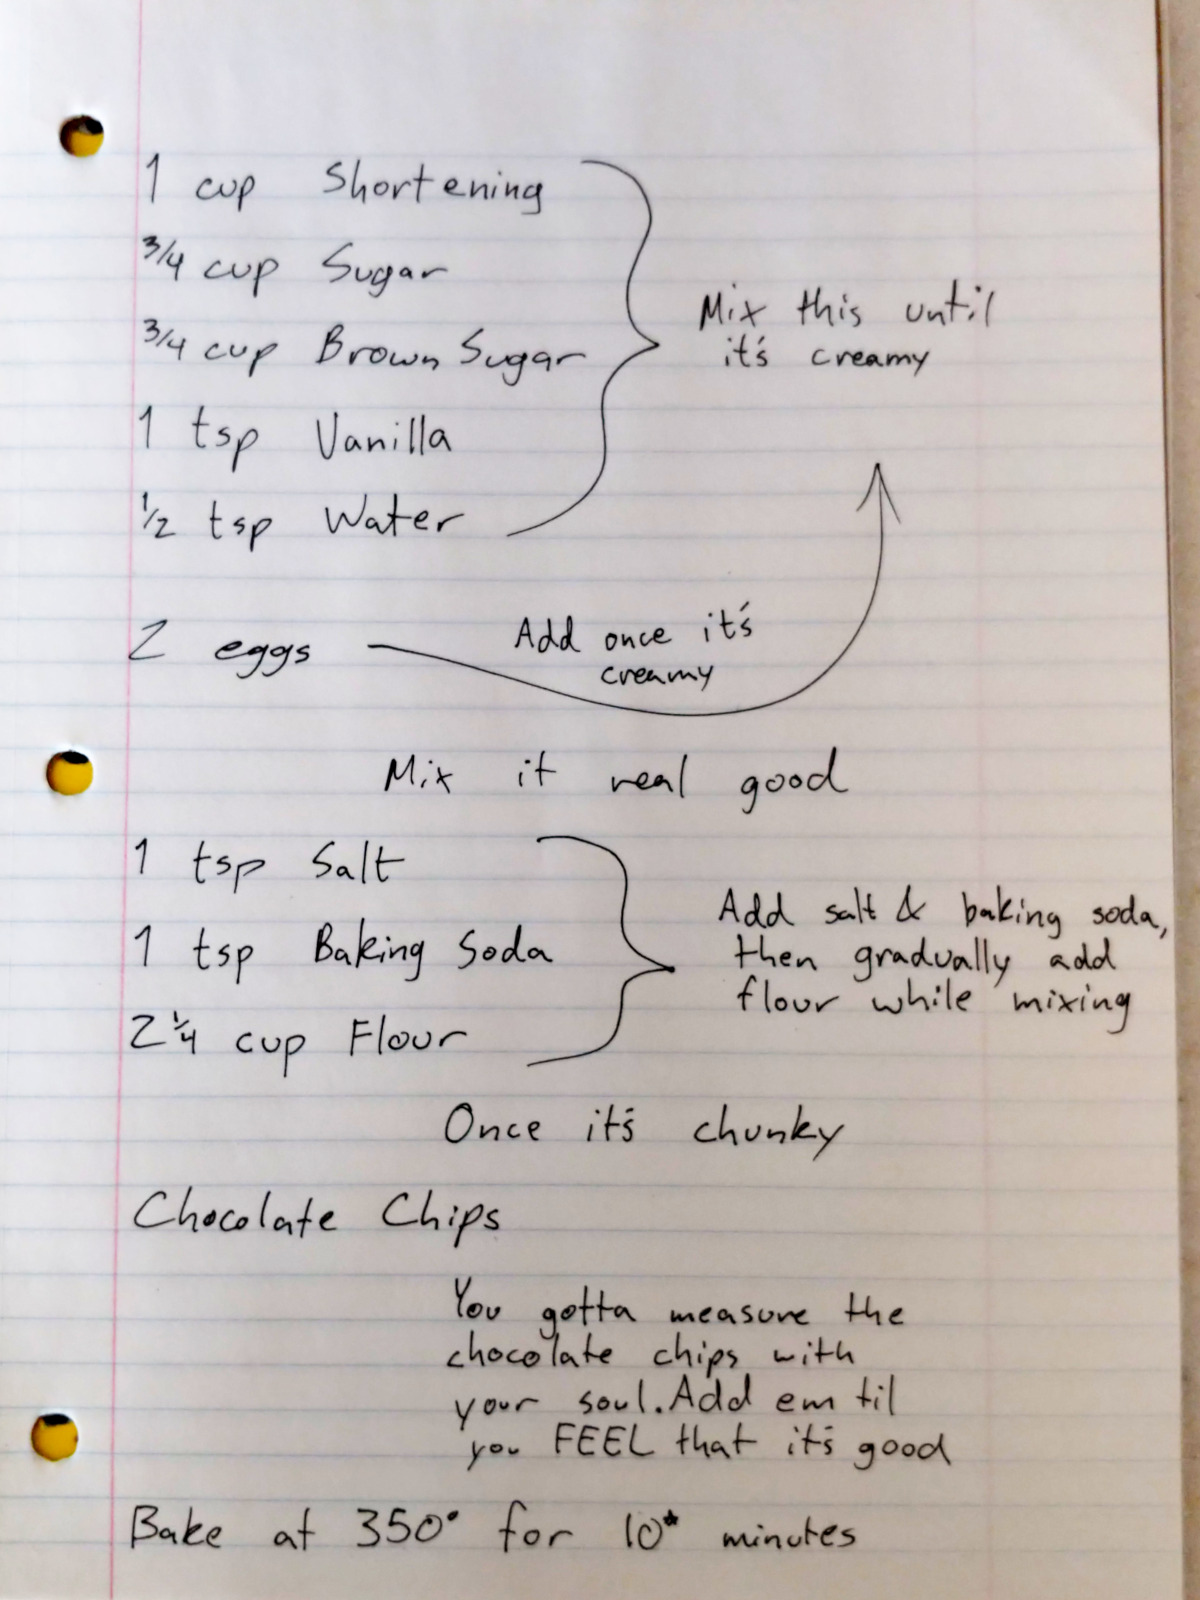 1 cup Shortening
3/4 cup Sugar
3/4 cup Brown Sugar
1 tsp Vanilla
1/2 tsp Water
Mix this until
it's creamy
2 eggs
Add once it's
creamy
Mix it real good
1 tsp Salt
1 tsp Baking Soda
2 1/4 cup Flour
Add salt & baking soda,
then gradually add
flour while mixing
Once it's chunky
Chocolate Chips
You gotta measure the
chocolate chips with
your soul. Add em til
you FEEL that it's good
Bake at 350° for 10* minutes